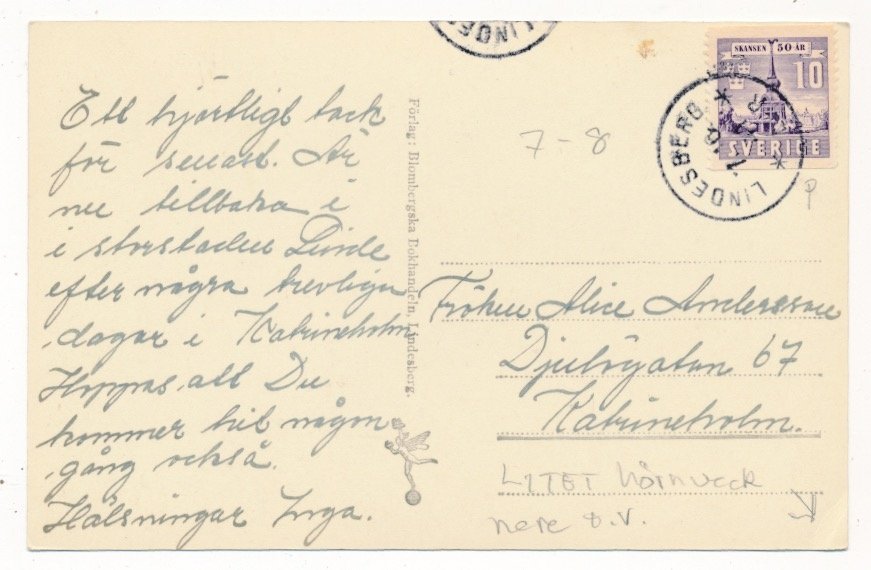 Ett hjärtligt tack
för senast. Är
nu tillbaka i
i storstaden Linde
efter några trevliga
dagar i Katrineholm
Hoppas att Du
kommer hit någon
gång också.
Hälsningar Inga.
Förlag: Blombergska Bokhandeln, Lindesberg.
LINDES
SKANSEN 50 ÅR
10
SVERIGE
LINDESBERG
7-8
P
Fröken Alice Andersson
Djulögatan 67
Katrineholm.
LITET hörnveck
nere t.v.